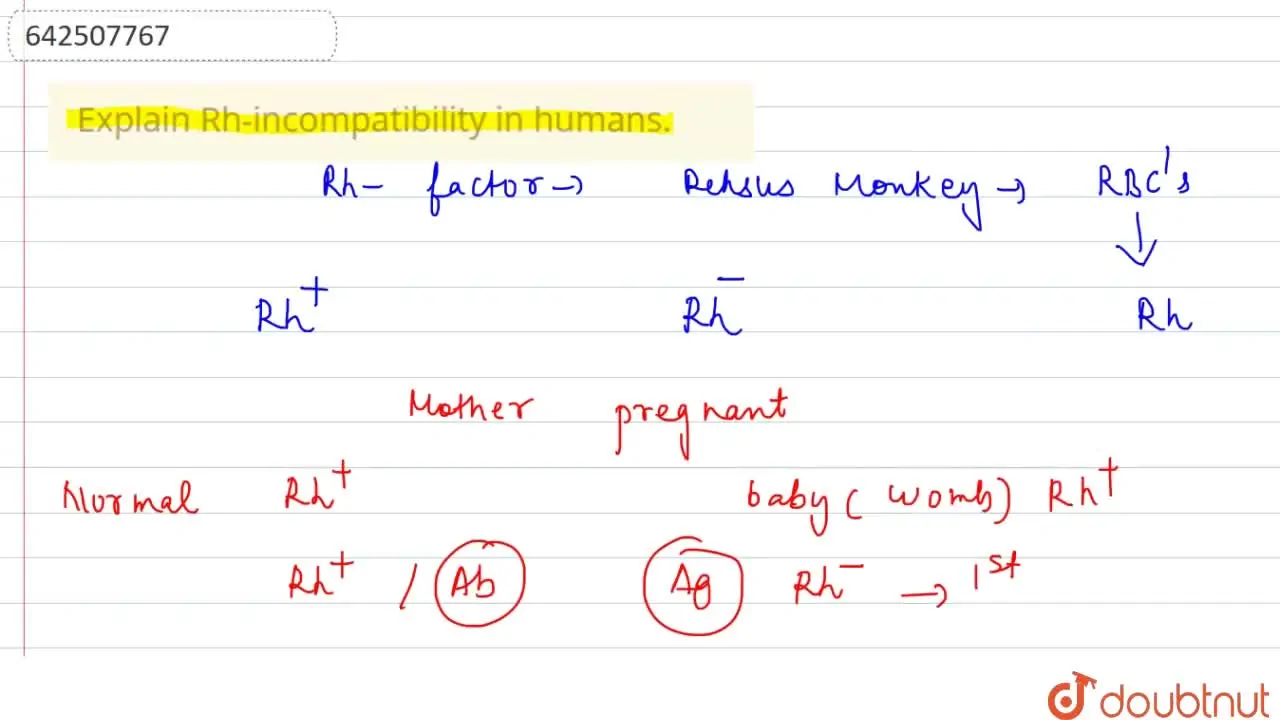 642507767
Explain Rh-incompatibility in humans.
Rh- factor → Rehsus Monkey → RBC's
↓
Rh+ Rh- Rh
Mother pregnant
Normal Rh+ baby ( womb) Rh+
Rh+ / Ab Ag Rh- → 1st
doubtnut